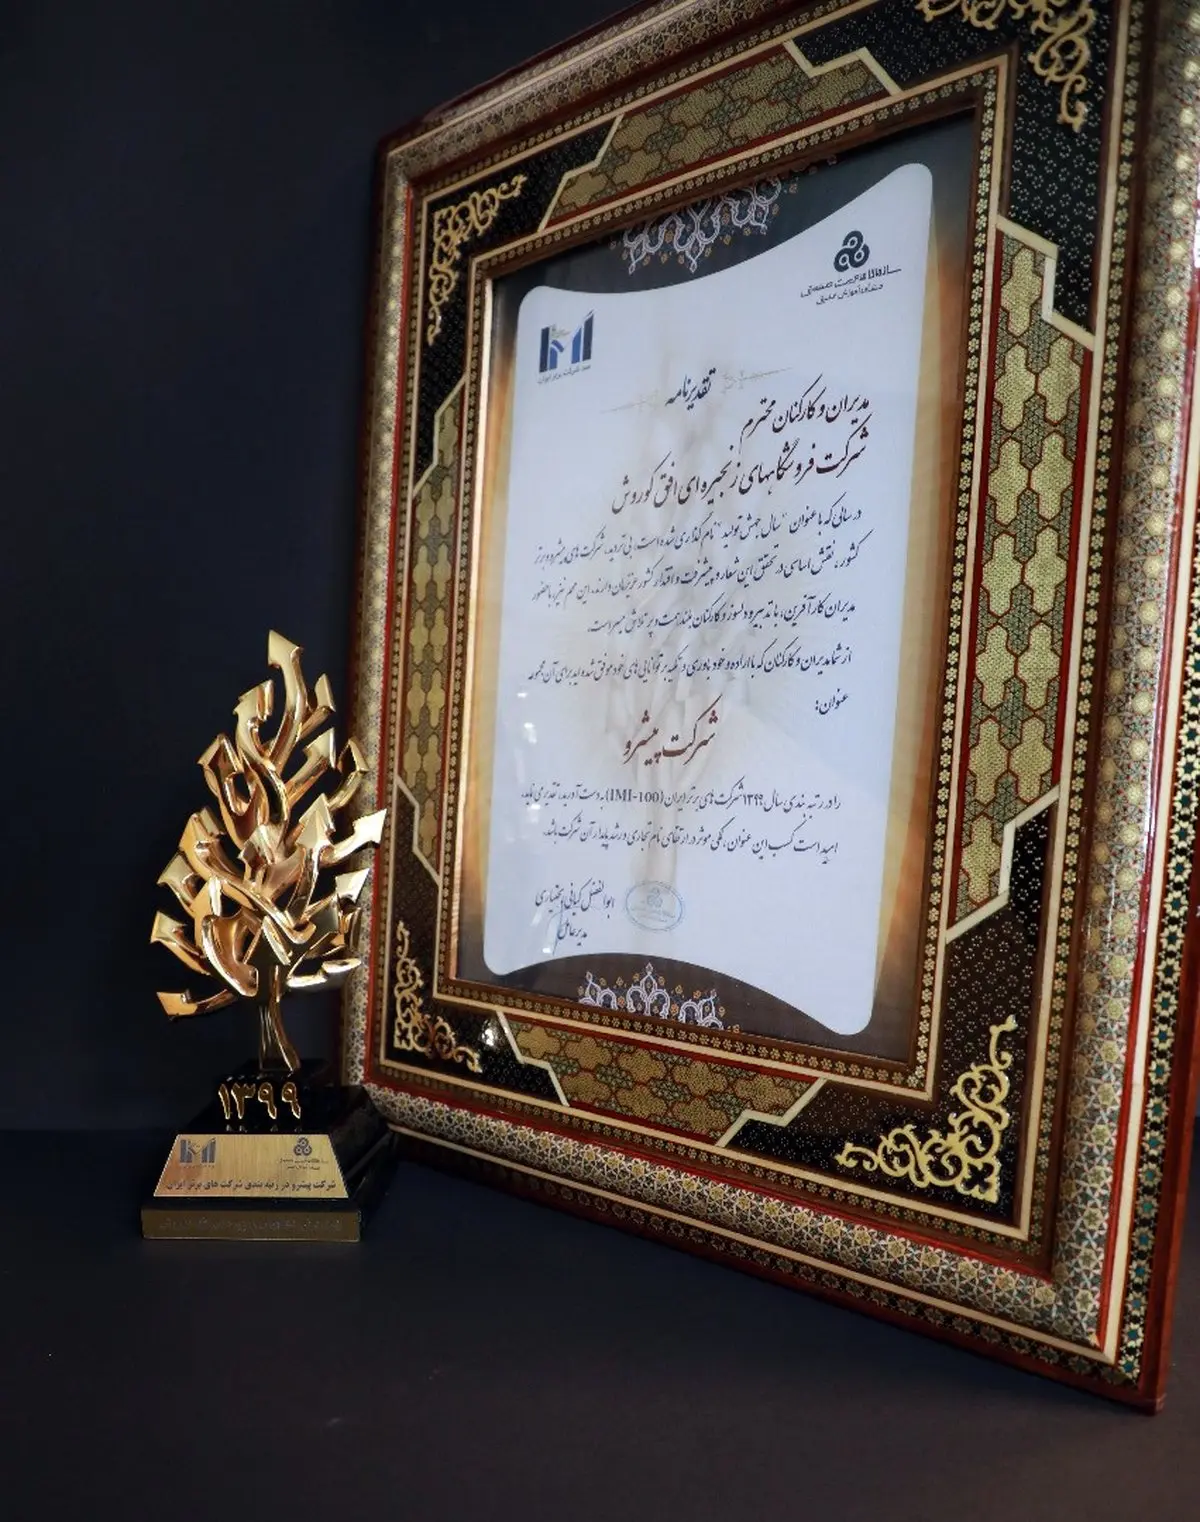 سازمان مدیریت صنعتی
صد شرکت برتر ایران
تقدیرنامه
مدیران و کارکنان محترم
شرکت فروشگاههای زنجیره ای افق کوروش
در سالی که با عنوان "سال جهش تولید" نام گذاری شده است، بی تردید، شرکت های پیشرو و برتر
کشور، نقش اساسی در تحقق این شعار و پیشرفت و اقتدار کشور عزیزمان دارند. این مهم نیز، با حضور
مدیران کارآفرین، با تدبیر و دلسوز و کارکنان بلند همت و پر تلاش میسر است.
از شما مدیران و کارکنان که با اراده و خود باوری و تکیه بر توانایی های خود موفق شده اید برای آن مجموعه
عنوان:
شرکت پیشرو
را در رتبه بندی سال ۱۳۹۹ شرکت های برتر ایران (IMI-100) بدست آورید، تقدیر می نماید.
امید است کسب این عنوان، گامی موثر در ارتقای نام تجاری و رشد پایدار آن شرکت باشد.
ابوالفضل کیانی بختیاری
مدیرعامل
۱۳۹۹
شرکت پیشرو در رتبه بندی شرکت های برتر ایران